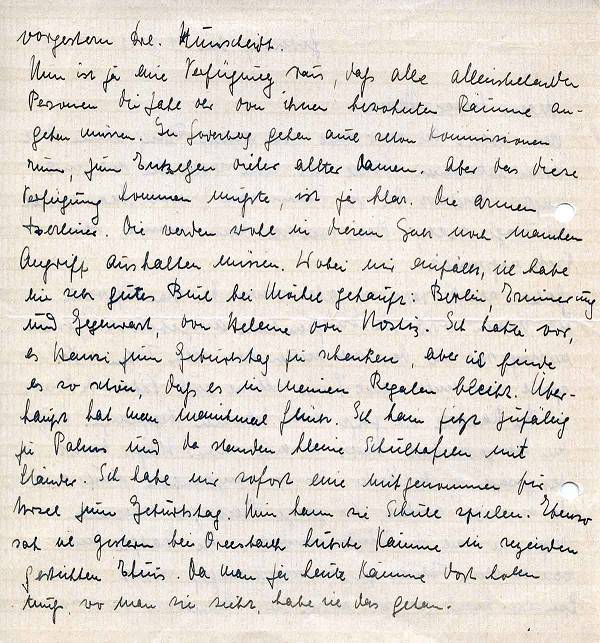 vorgestern Frl. Hünscheidt.
Nun ist ja eine Verfügung raus, daß alle alleinstehenden
Personen die Zahl der von ihnen bewohnten Räume an-
geben müssen. In Godesberg gehen auch schon Kommissionen
rum, zum Entsetzen vieler alter Damen. Aber das diese
Verfügung kommen mußte, ist ja klar. Die armen
Berliner. Die werden wohl in diesem Jahr noch manchen
Angriff aushalten müssen. Wobei mir einfällt, ich habe
ein sehr gutes Buch bei gekauft: Berlin, Erinnerung
und Gegenwart, von Helene von Nostiz. Ich hatte vor,
es zum Geburtstag zu schenken, aber ich finde
es so schön, daß es in meinen Regalen bleibt. Über-
haupt hat man manchmal Glück. Ich kam jetzt zufällig
zu und da standen kleine Schultafeln mit
Ständer. Ich habe mir sofort eine mitgenommen für
zum Geburtstag. Nun kann sie Schule spielen. Ebenso
sah ich gestern bei hübsche Kämme in reizenden
gestickten Etuis. Da man ja heute Kämme dort holen
muß, wo man sie sieht, habe ich das getan.